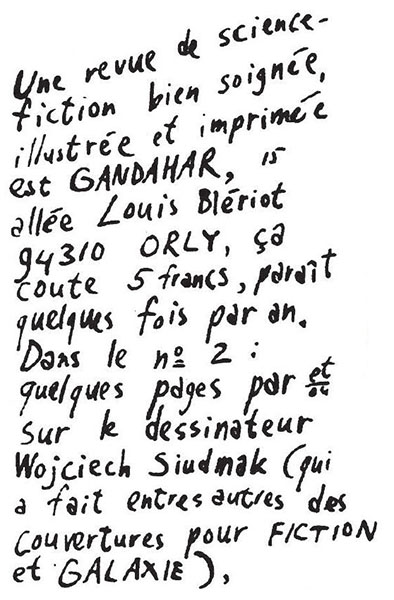 Une revue de science-
fiction bien soignée,
illustrée et imprimée
est GANDAHAR, 15
allée Louis Blériot
94310 ORLY, ça
coute 5 francs, paraît
quelques fois par an.
Dans le nº 2 :
quelques pages par et/ou
sur le dessinateur
Wojciech Siudmak (qui
a fait entres autres des
couvertures pour FICTION
et GALAXIE),